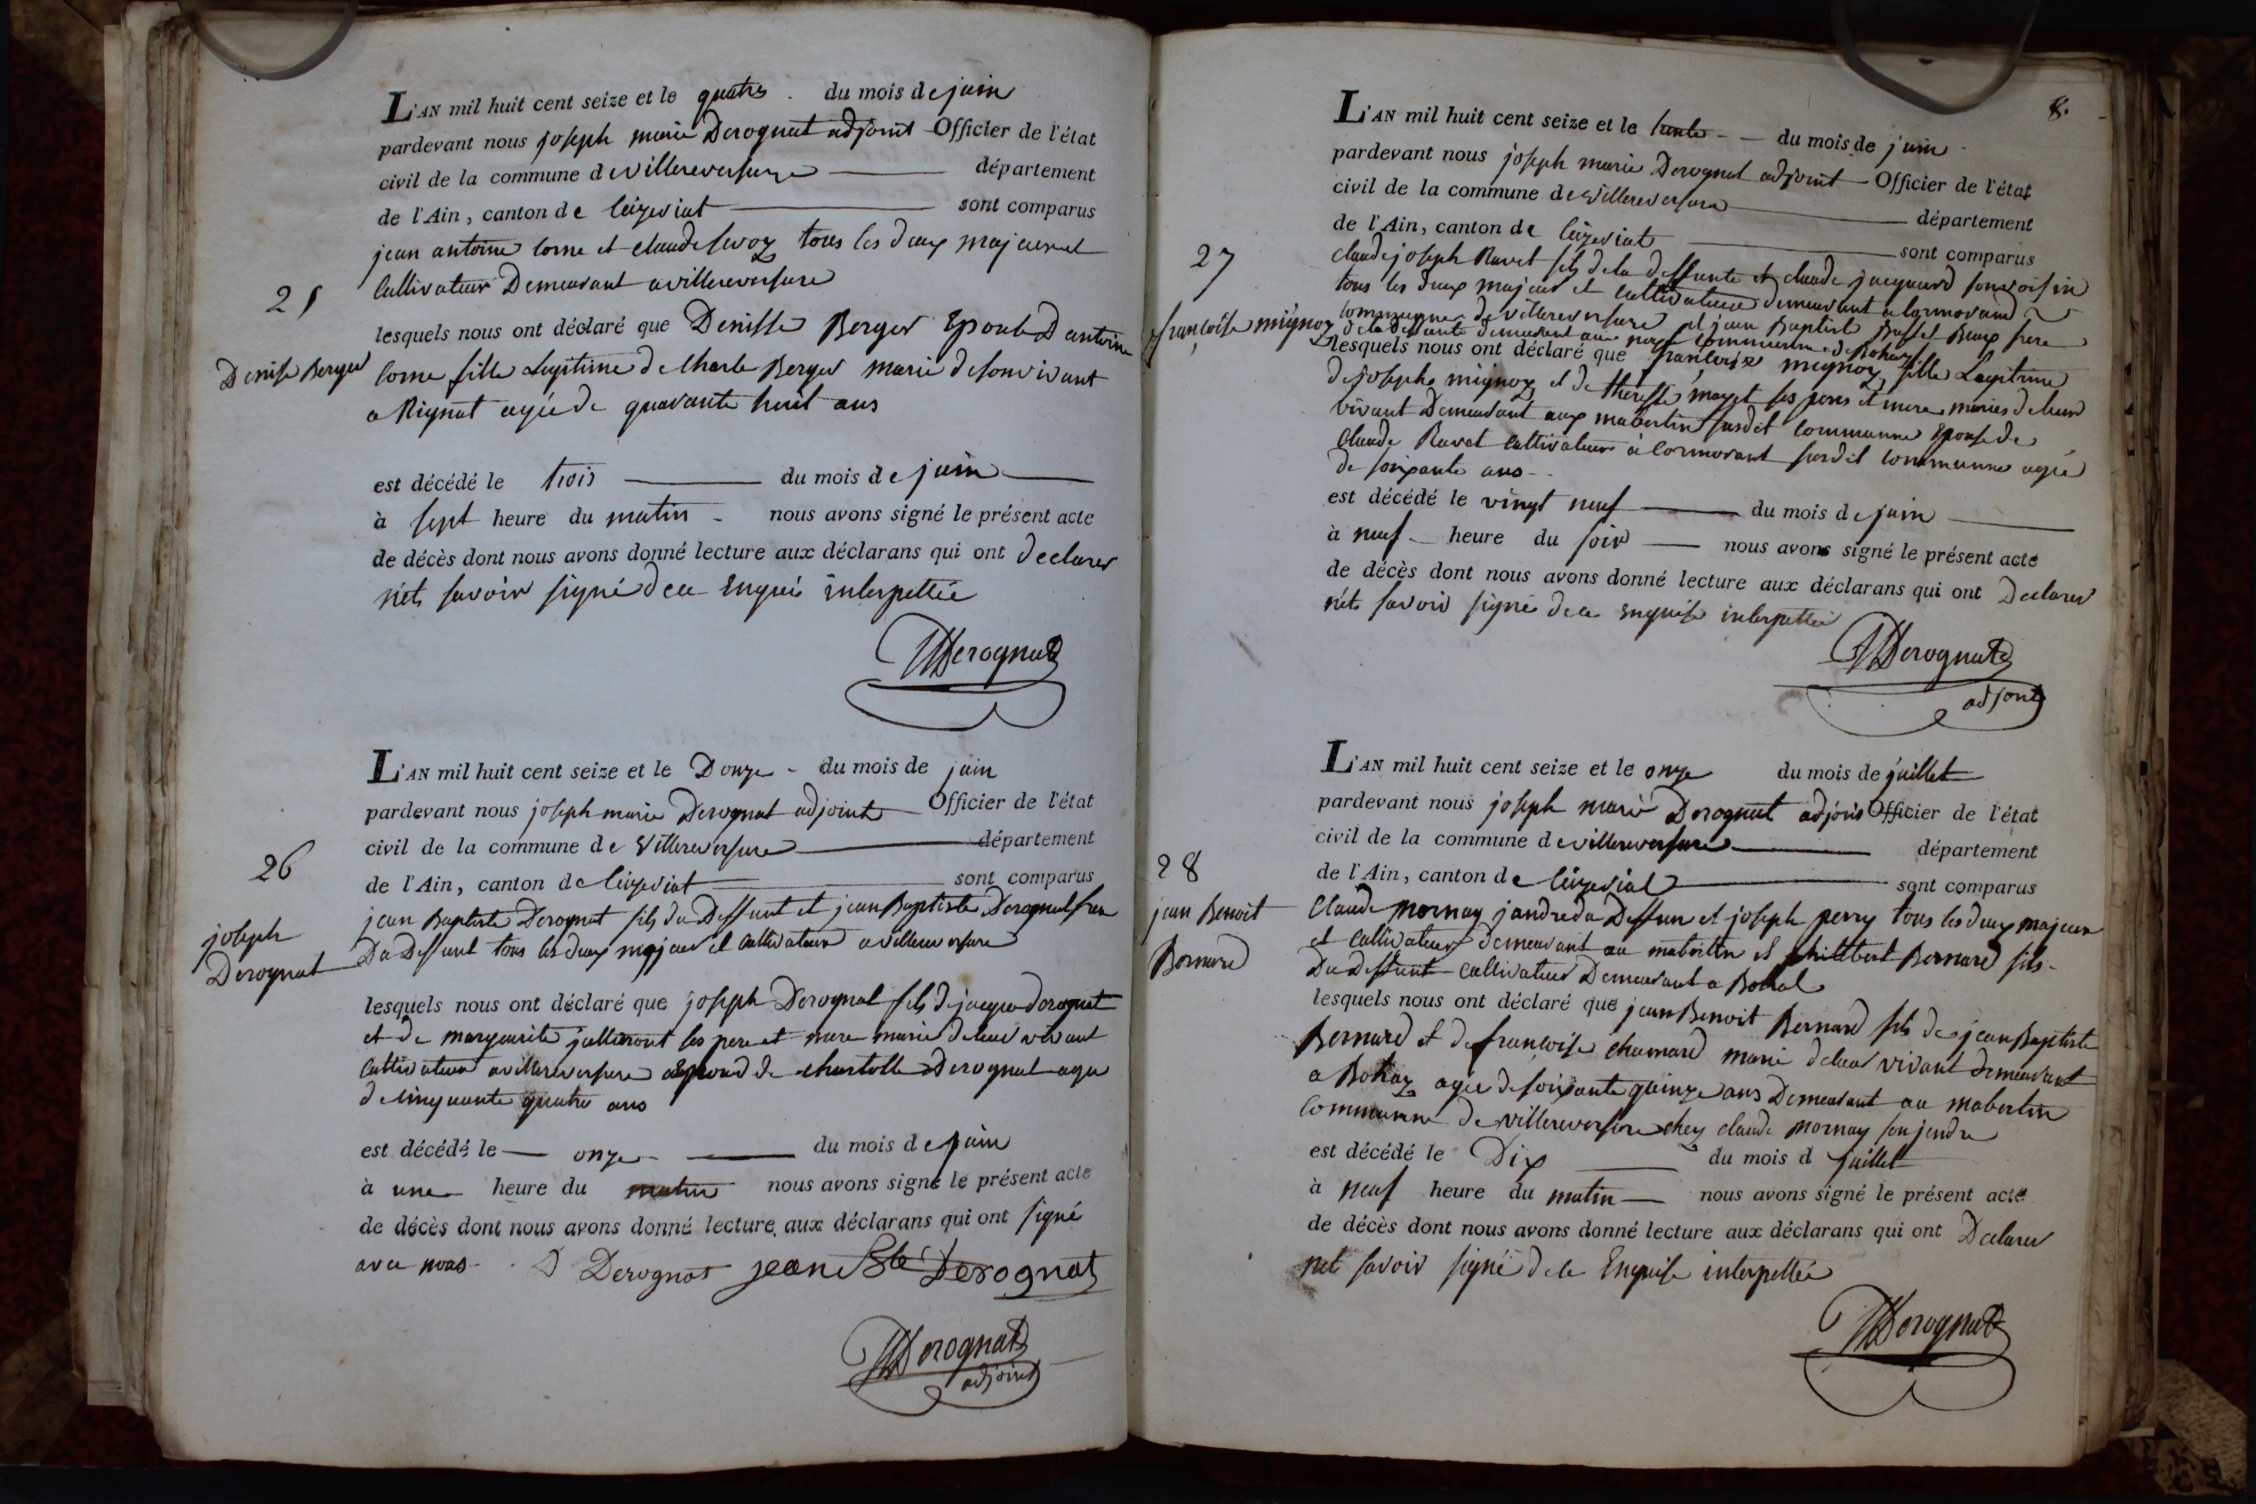 L'AN mil huit cent seize et le quatre du mois de juin
pardevant nous joseph marie Derognat adjoint Officier de l'état
civil de la commune de villereversure département
de l'Ain, canton de Ceizeriat sont comparus
jean antoine Corne et claude tous les deux majeur et
Cultivateur Demeurant a villereversure
25
Denise Berger
lesquels nous ont déclaré que Denisse Berger Epouse D antoine
Corne fille Legitime de Charle Berger marié de son vivant
a Rignat agée de quarante huit ans
est décédé le trois du mois de juin
à sept heure du matin nous avons signé le présent acte
de décès dont nous avons donné lecture aux déclarans qui ont declarer
n'ets savoir signé de ce Enquis interpellée
JMDerognat
L'AN mil huit cent seize et le Douze du mois de juin
pardevant nous joseph marie Derognat adjoint Officier de l'état
civil de la commune de villereversure département
26
de l'Ain, canton de Ceizeriat sont comparus
jean Baptiste Derognat fils du Deffunt et jean Baptiste Derognat frere
Du Deffunt tous les deux majeur et Cultivateur a villereversure
joseph
Derognat
lesquels nous ont déclaré que joseph Derognat fils de jacque derognat
et de marguerite ses pere et mere marié de leur vivant
Cultivateur a villereversure de Derognat agé
de cinquante quatre ans
est décédé le onze du mois de juin
à une heure du matin nous avons signé le présent acte
de décès dont nous avons donné lecture aux déclarans qui ont signé
avec nous D Derognat jean Bte Derognat
JMDerognat
adjoint
8.
L'AN mil huit cent seize et le trente du mois de juin
pardevant nous joseph marie Derognat adjoint Officier de l'état
civil de la commune de villereversure département
de l'Ain, canton de Ceizeriat sont comparus
27
françoise mignoz
claude joseph Ravet fils de la deffunte et claude jacquard son voisin
tous les deux majeur et cultivateur demeurant a Cormorand
Commune de villereversure et jean Baptiste Beaux frere
de la deffunte demeurant au commune de Bohas
lesquels nous ont déclaré que françoise mignoz fille Legitime
de joseph mignoz et de theresse ses pere et mere mariés de leur
vivant Demeurant aux mabertin susdit Commune Epouse de
Claude Ravet Cultivateur à Cormorant susdit commune agée
de soixante ans
est décédé le vingt neuf du mois de juin
à neuf heure du soir nous avons signé le présent acte
de décès dont nous avons donné lecture aux déclarans qui ont Declarer
n'ets savoir signé de ce enquise interpellée
JMDerognat
adjoint
L'AN mil huit cent seize et le onze du mois de juillet
pardevant nous joseph marie Derognat adjoint Officier de l'état
civil de la commune de villereversure département
28
de l'Ain, canton de Ceizeriat sont comparus
jean Benoit
Bernard
Claude mornay jandre du Deffun et joseph perry tous les deux majeur
et Cultivateur demeurant au mabertin et philibert Bernard fils
Du Deffunt Cultivateur Demeurant a Bohas
lesquels nous ont déclaré que jean Benoit Bernard fils de jean Baptiste
Bernard et de françoise chanard marié de leur vivant demeurant
a Bohaz agée de soixante quinze ans Demeurant au mabertin
Commune de villereversure chez claude mornay son jendre
est décédé le Dix du mois d juillet
à neuf heure du matin nous avons signé le présent acte
de décès dont nous avons donné lecture aux déclarans qui ont Declarer
net savoir signé de ce Enquise interpellée
JMDerognat